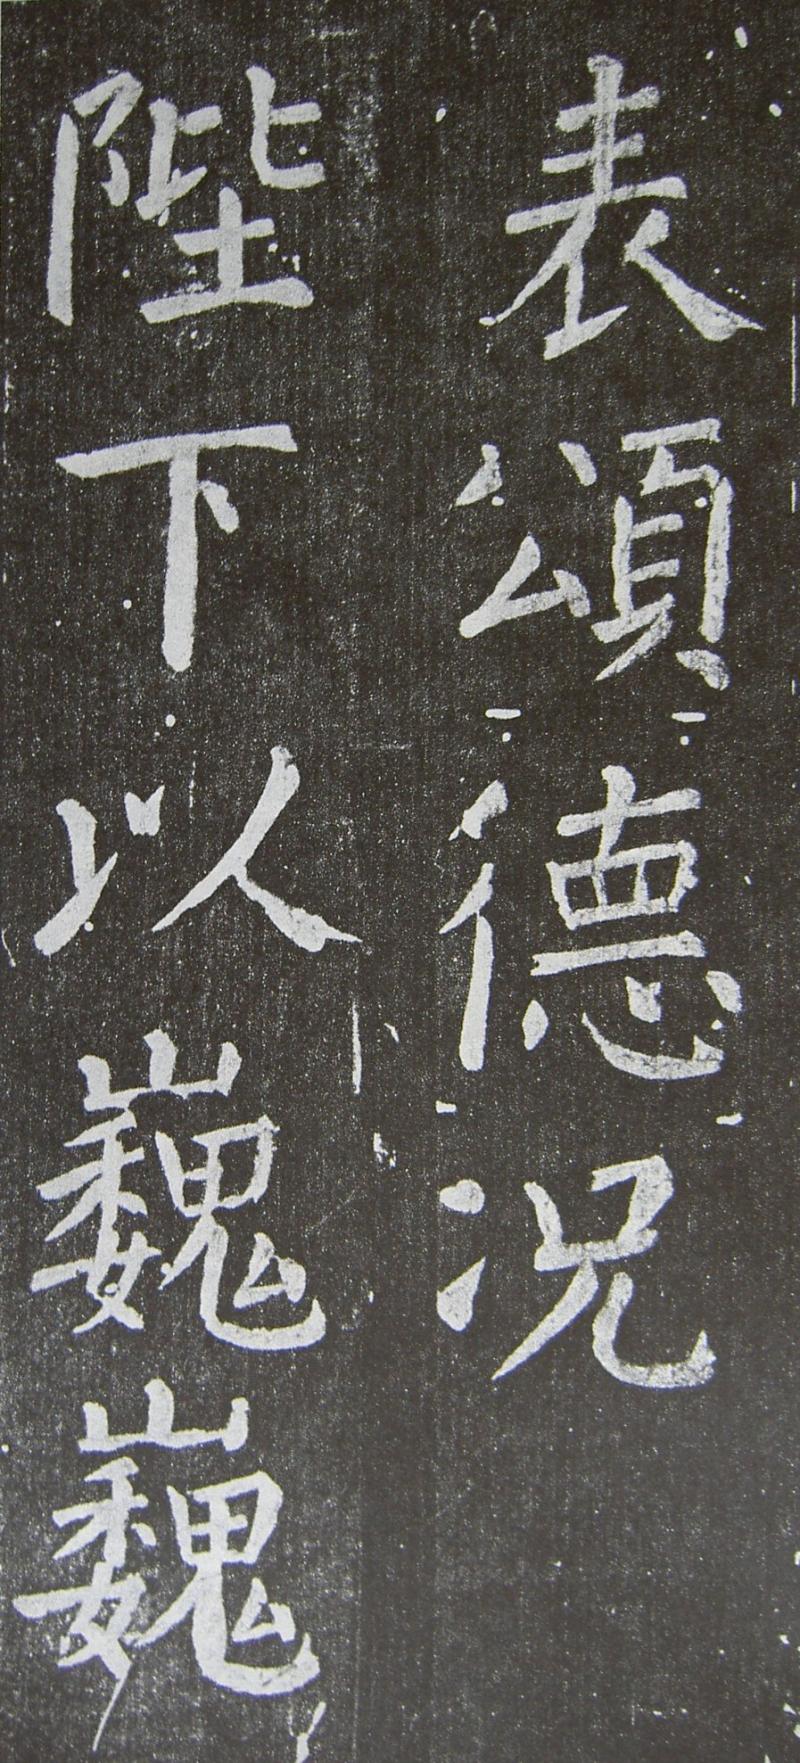 表頌德况
陛下以巍巍